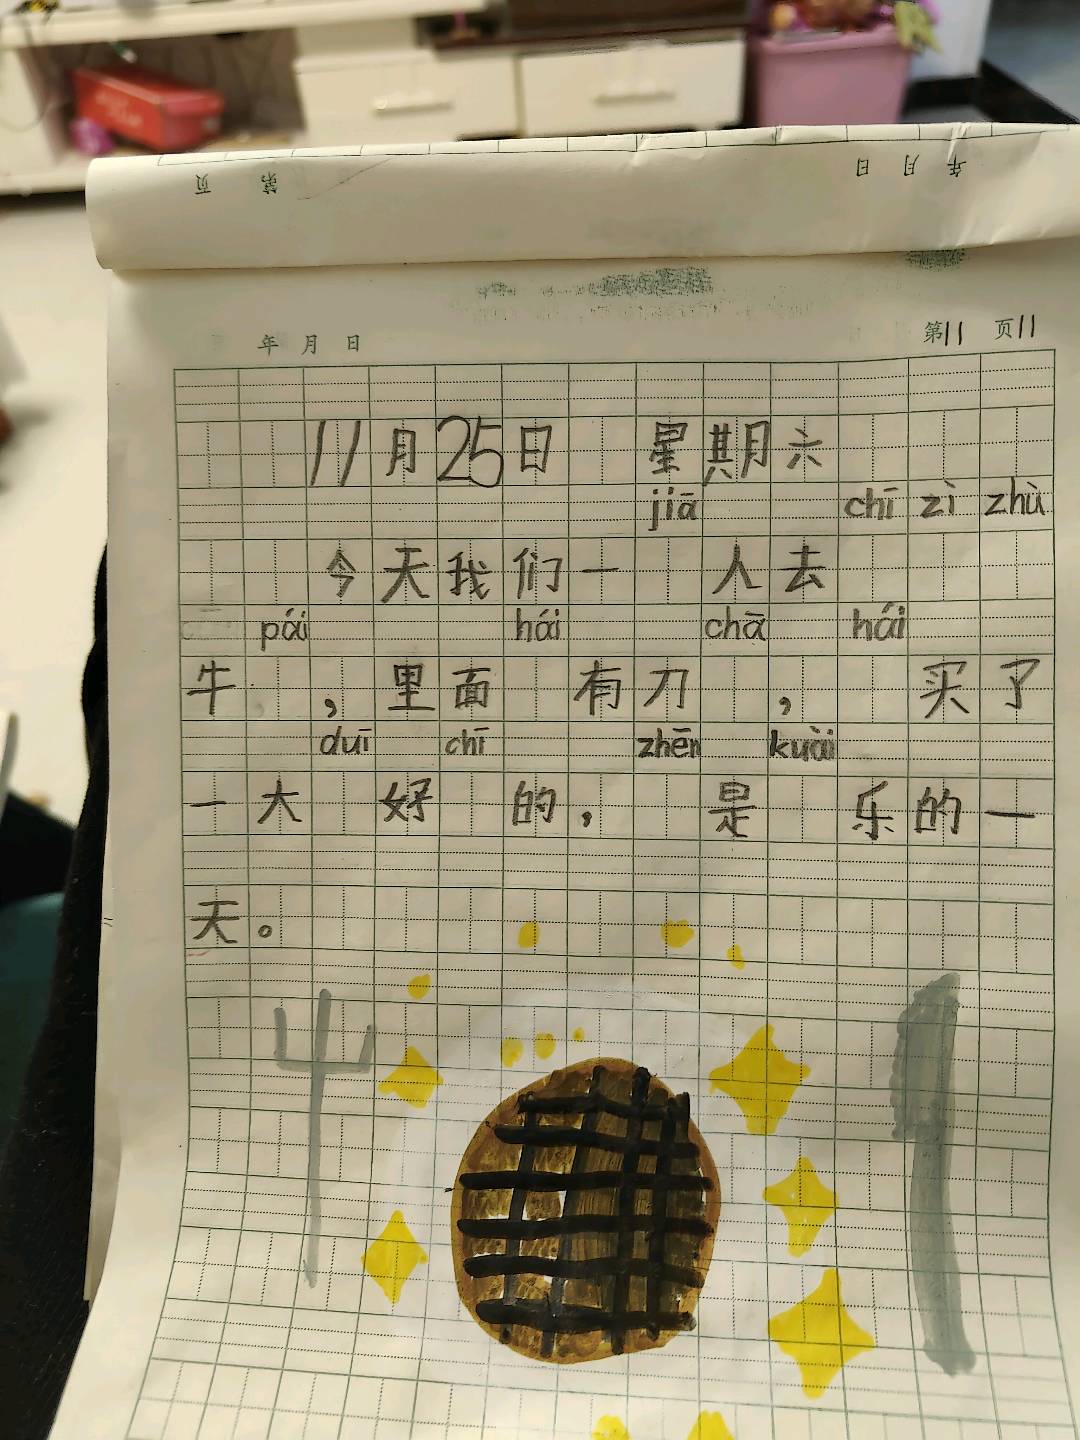 页 第 日 月 年
年 月 日 第11 页11
11月25日 星期六
jiā chī zì zhù
今天我们一 人去
pái hái chā hái
牛 ，里面 有刀 ， 买了
duī chī zhēn kuài
一大 好 的， 是 乐的一
天。